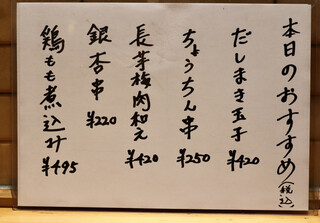 本日のおすすめ(税込)
だしまき玉子 ¥420
ちょうちん串 ¥250
長芋梅肉和え ¥420
銀杏串 ¥220
鶏もも煮込み ¥495